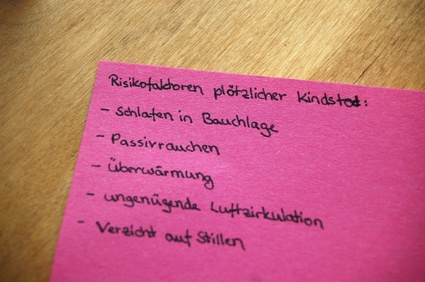 Risikofaktoren plötzlicher Kindstod:
- Schlafen in Bauchlage
- Passivrauchen
- Überwärmung
- ungenügende Luftzirkulation
- Verzicht auf Stillen